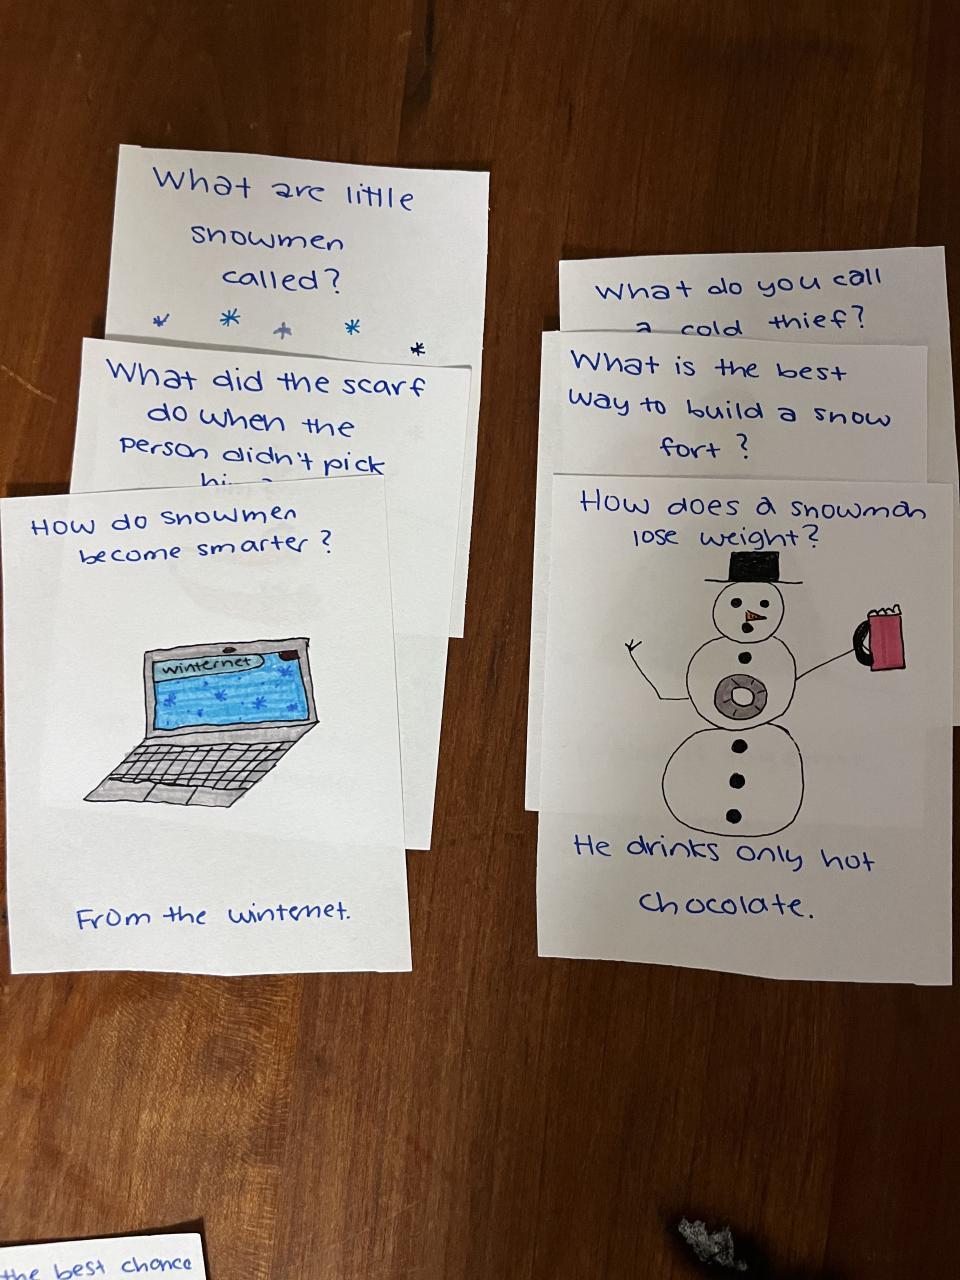 What are little
snowmen
called?
What did the scarf
do when the
person didn't pick
How do snowmen
become smarter?
winternet
From the winternet.
What do you call
a cold thief?
What is the best
way to build a snow
fort?
How does a snowman
lose weight?
He drinks only hot
chocolate.
the best chance